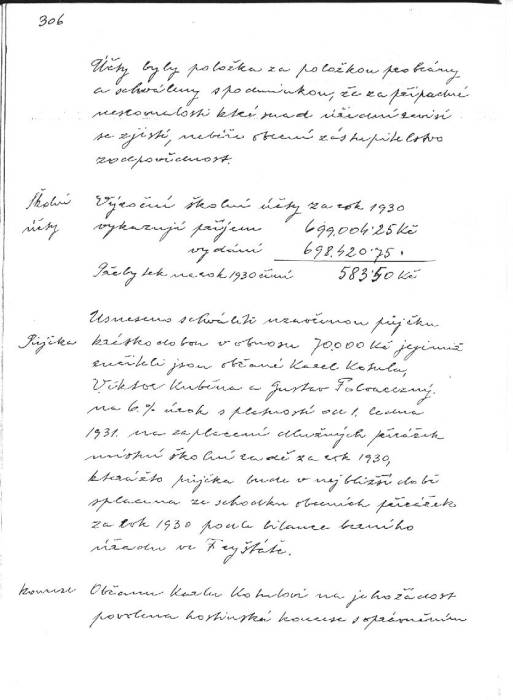 306
Účty byly položka za položkou probrány
a schváleny s podmínkou, že za případné
nesrovnalosti které snad úřední revisí
se zjistí, nebéře obecní zastupitelstvo
zodpovědnost.
Školní účty
Výroční školní účty za rok 1930
vykazují příjem 699.004·25 Kč
vydání 698.420·75 ·
Přebytek na rok 1930 činí 583·50 Kč
Půjčka
Usneseno schváliti uzavřenou půjčku
krátkodobou v obnosu 70.000 Kč jejímiž
ručiteli jsou občané Karel Kotula,
Viktor Kuběna a Gustav
na 6 % úrok s platností od 1. ledna
1931. na zaplacení dlužných přirážek
místní školní radě za rok 1930,
kterážto půjčka bude v nejbližší době
splacena ze schodku obecních přirážek
za rok 1930 podle bilance berního
úřadu ve Fryštátě.
koncese
Občanu Karlu Kotulovi na jeho žádost
povolena hostinská koncese s oprávněním